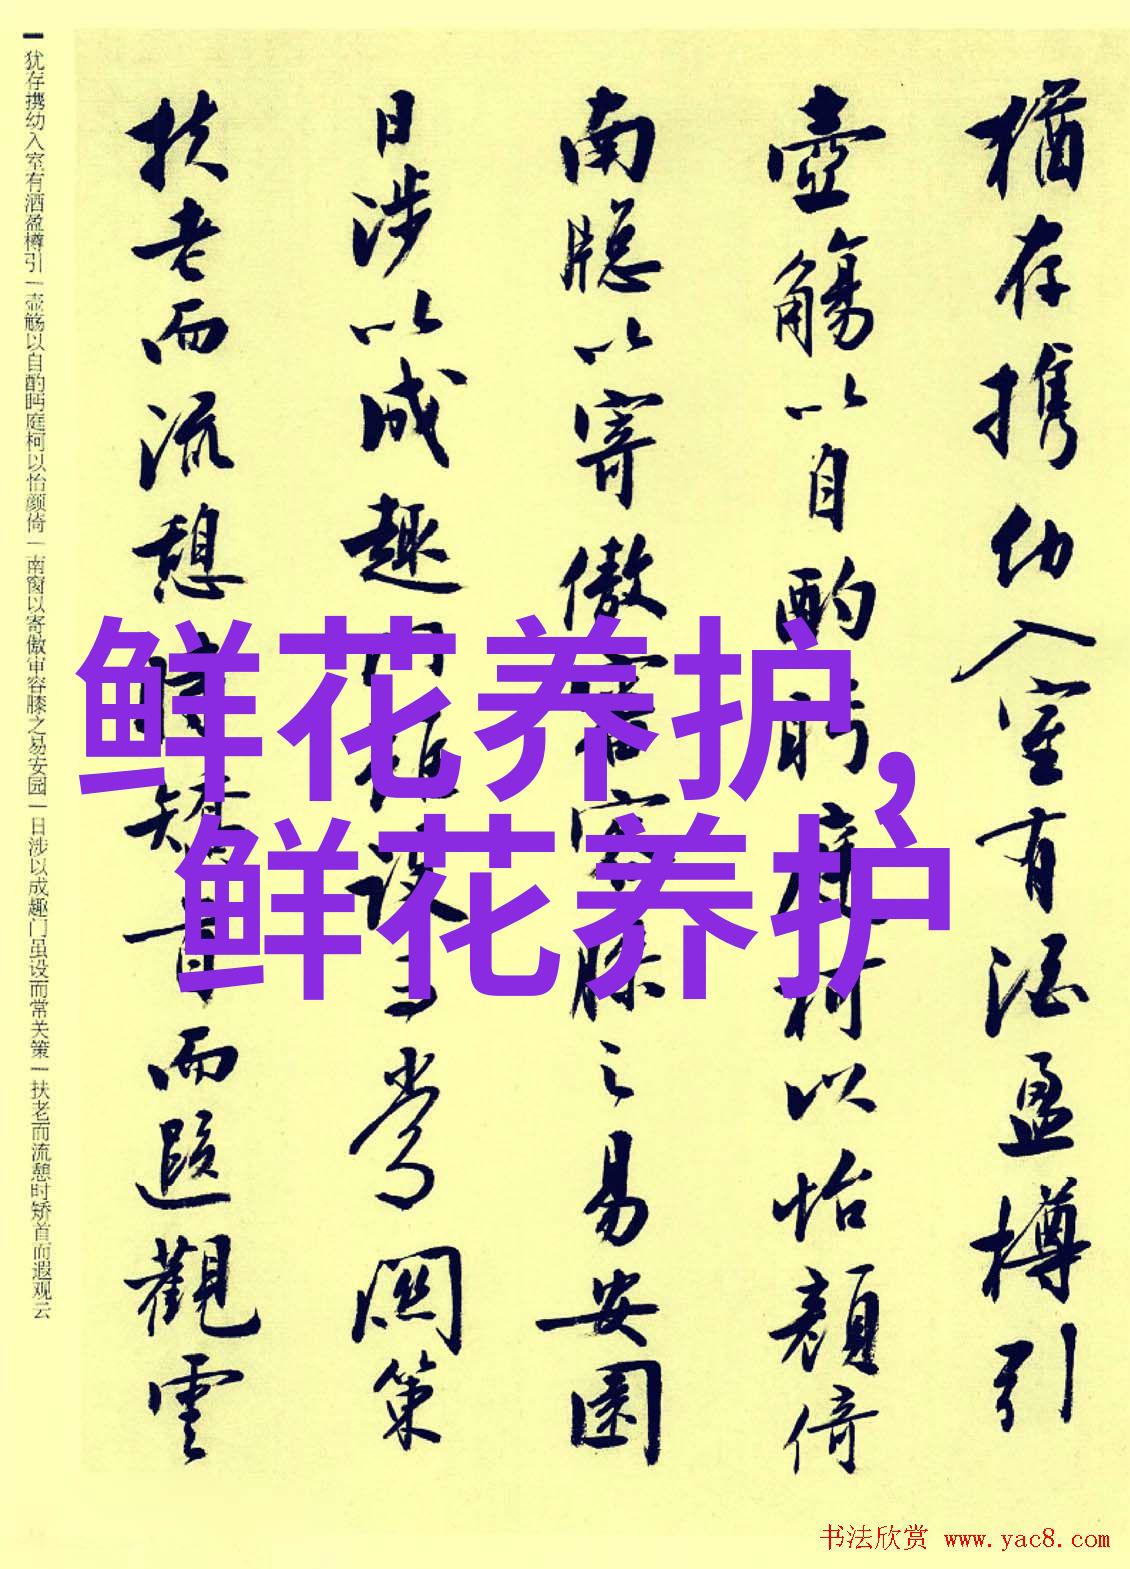 猶存携幼入室有酒盈樽引
壺觴以自酌眄庭柯以怡顏倚
南牕以寄傲審容膝之易安園
日涉以成趣門雖設而常關策
扶老而流憩時矯首而遐觀雲
犹存携幼入室有酒盈樽引|壶觞以自酌眄庭柯以怡颜倚|南窗以寄傲审容膝之易安园|日涉以成趣门虽设而常关策|扶老而流憩时矫首而遐观云
鲜花养护,
鲜花养护
书法欣赏 www.yac8.com